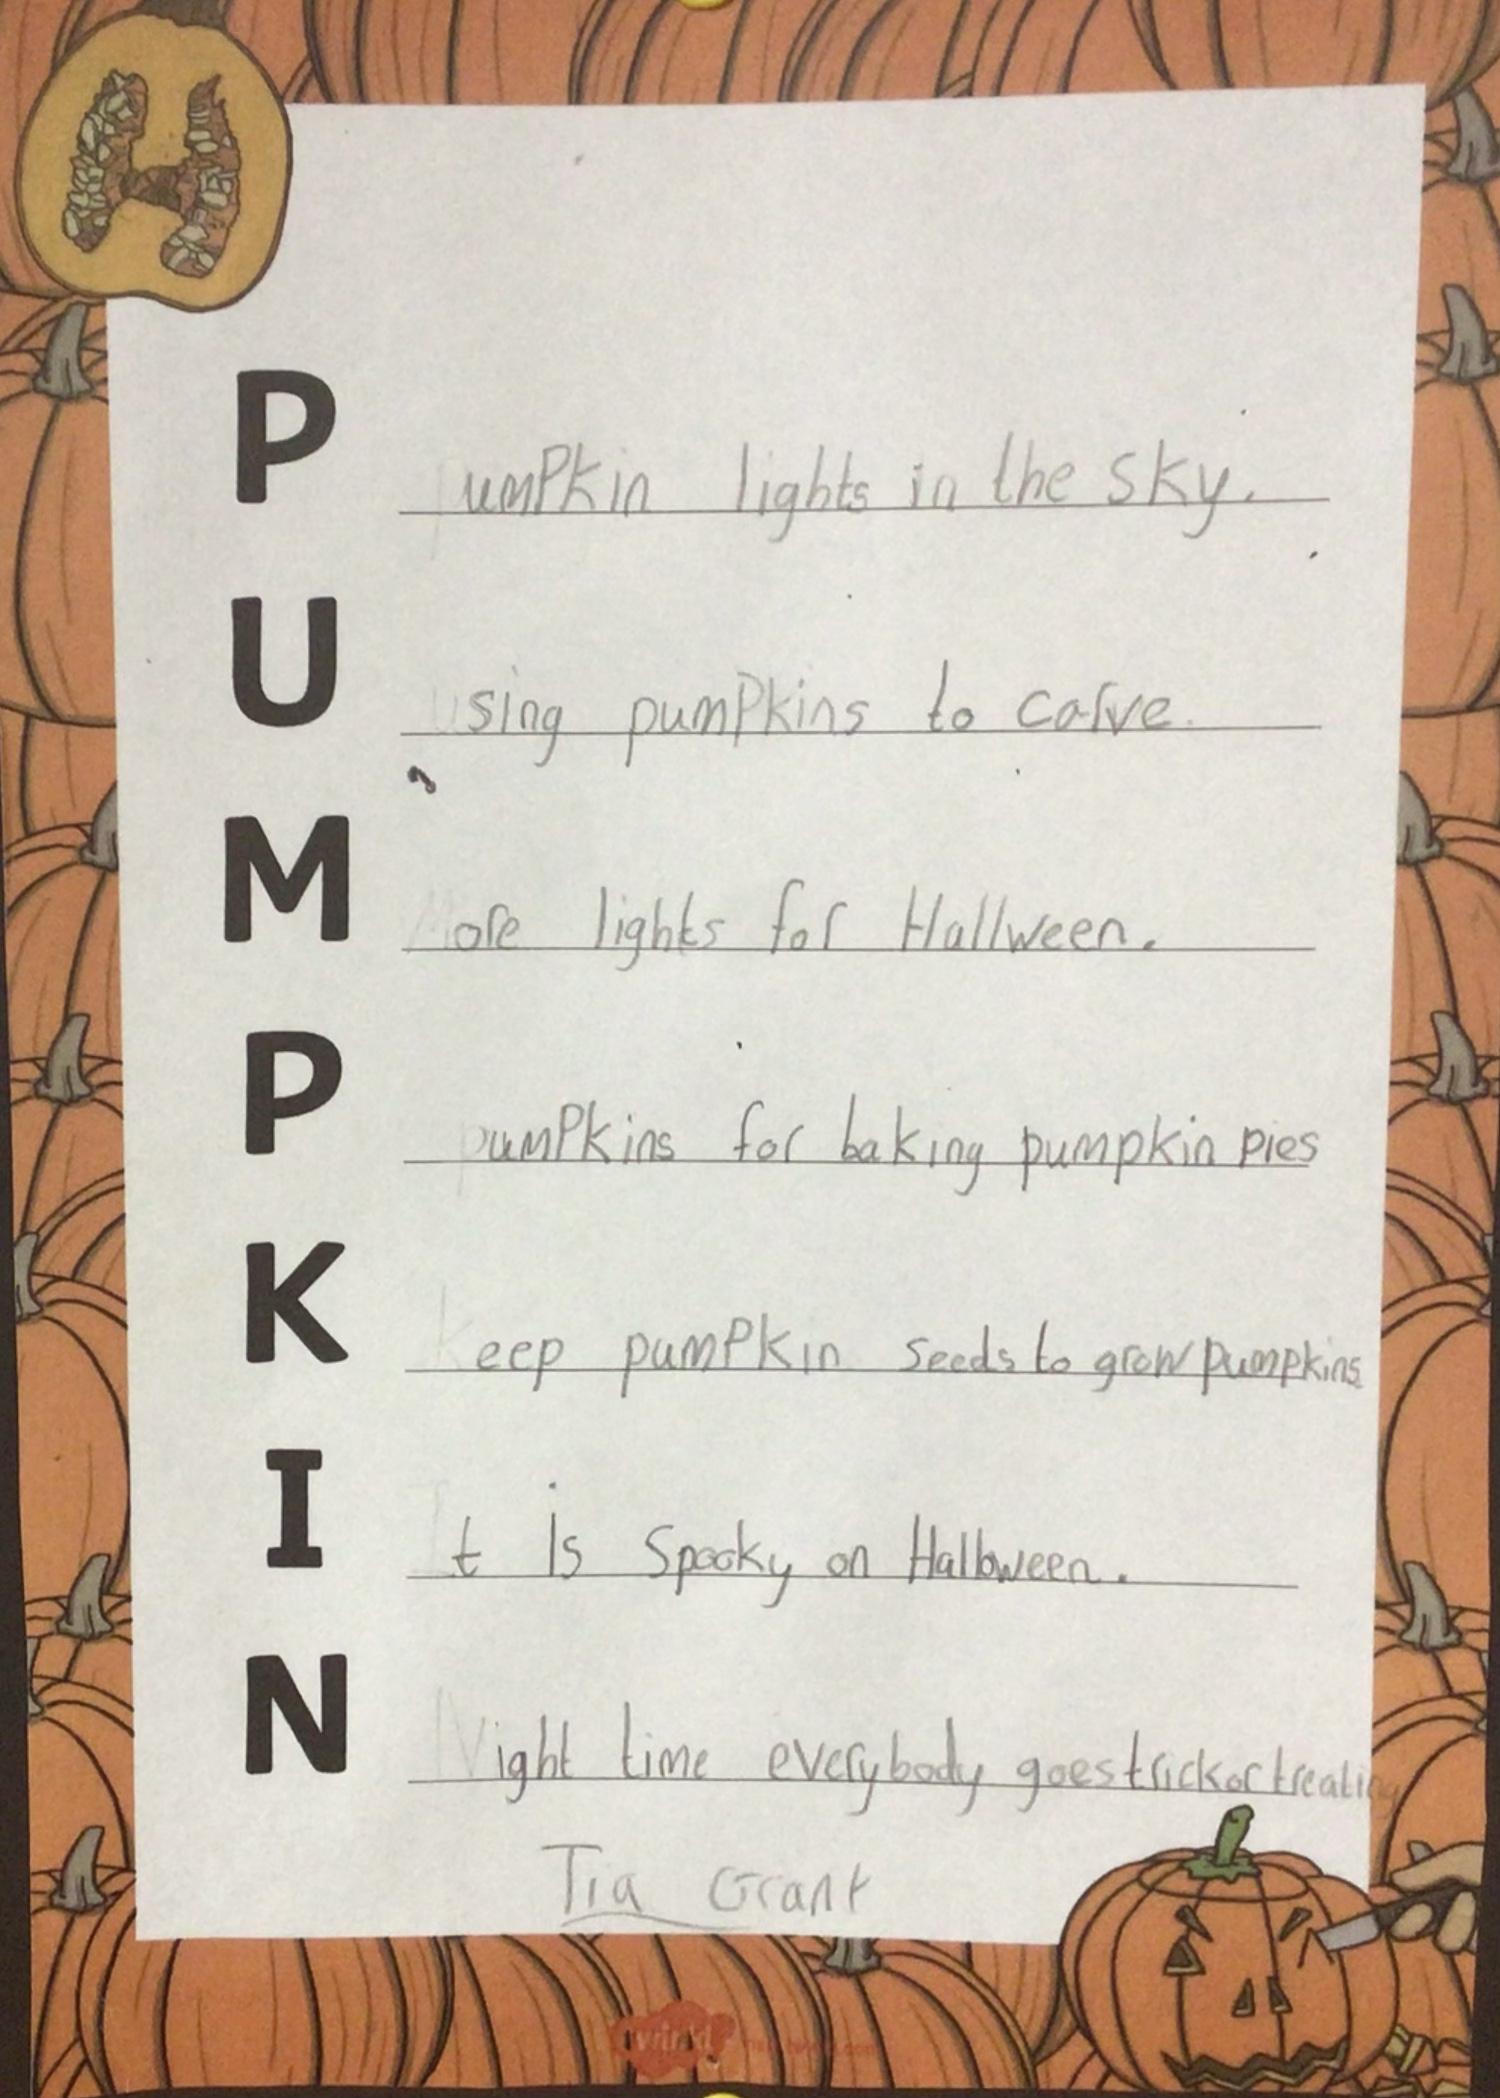 H
P Pumpkin lights in the sky.
U Using pumpkins to carve.
M More lights for Hallween.
P pumpkins for baking pumpkin pies
K Keep pumpkin seeds to grow pumpkins
I It is Spooky on Halloween.
N Night time everybody goes trick or treating
Tia Grant
twinkl